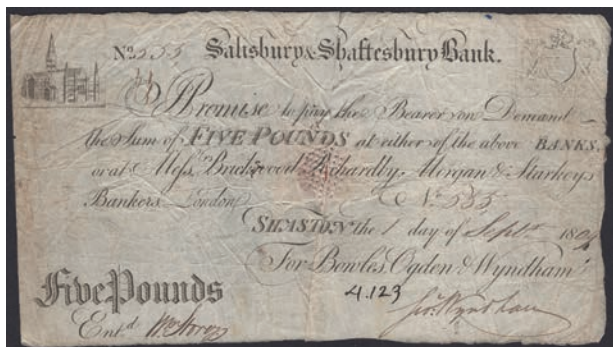 No. 555 Salisbury & Shaftesbury Bank.
I Promise to pay the Bearer on Demand
the Sum of FIVE POUNDS at either of the above BANKS,
or at Mess.rs Morgan & Starkeys
Bankers London No. 585
SHASTON the 1 day of Sept.r 180
For Bowles, Ogden & Wyndham
4.123
Five Pounds
Ent.d